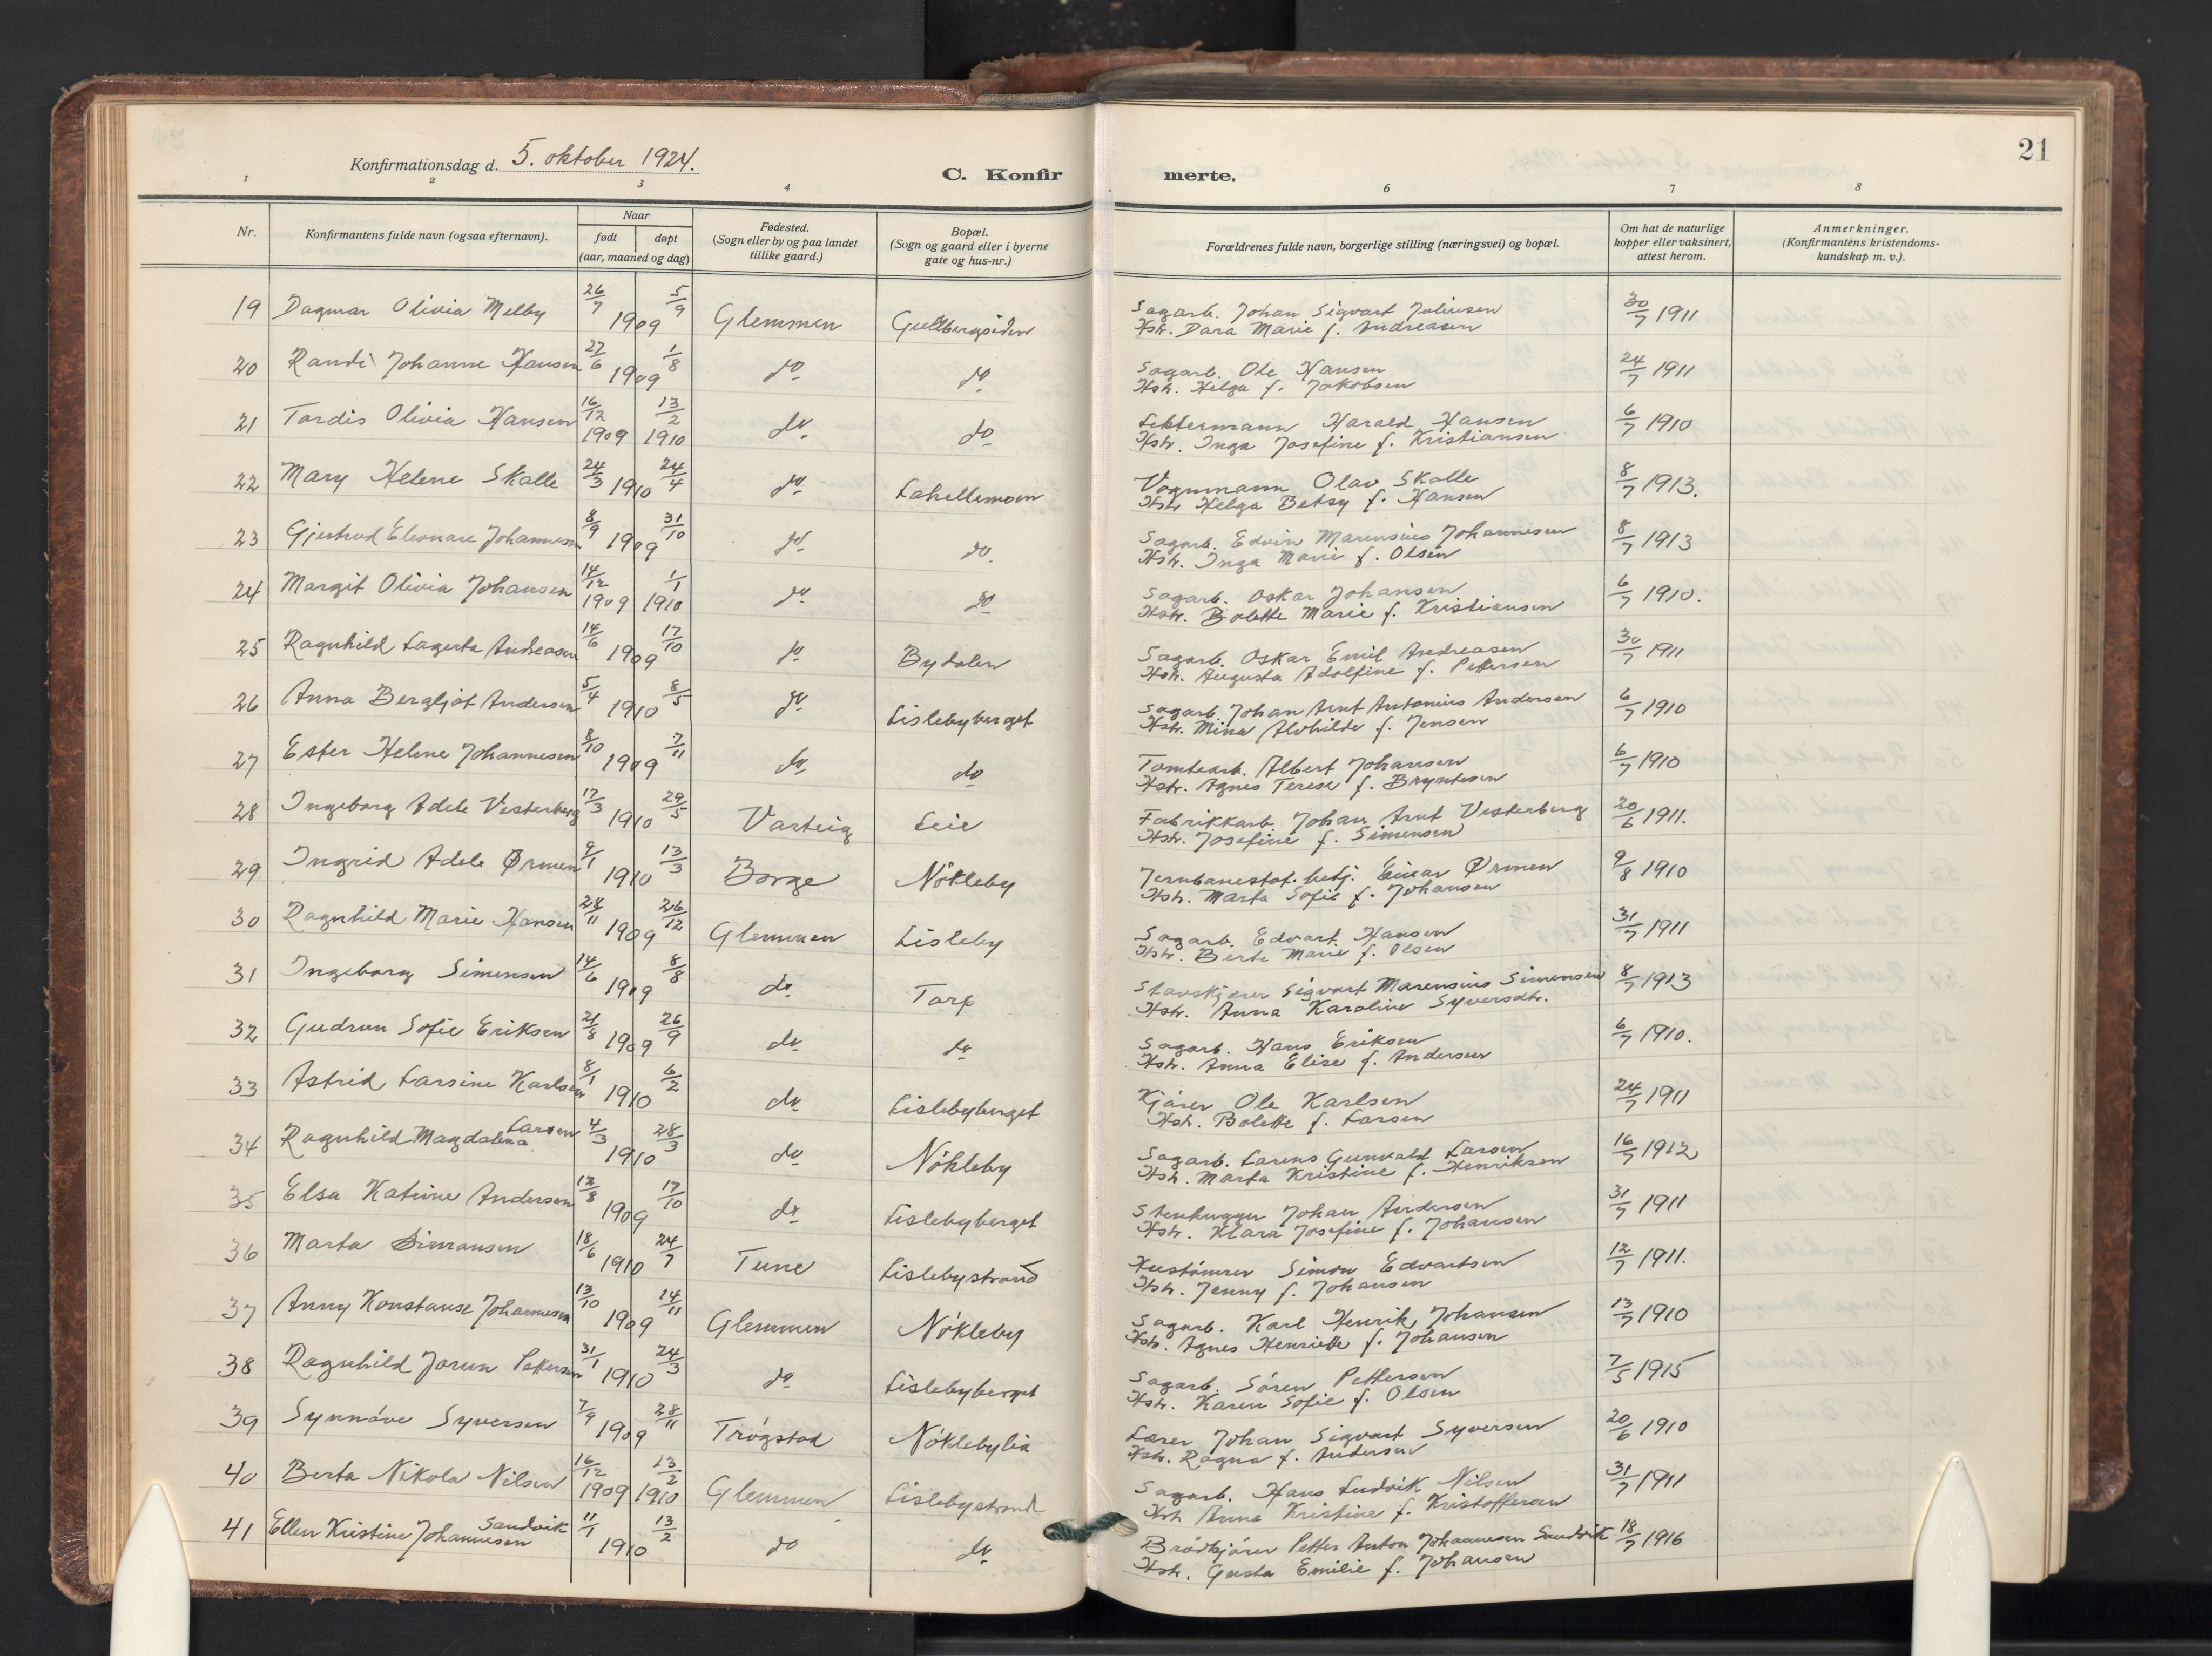 21
Konfirmationsdag d. 5. oktober 1924.
C. Konfirmerte.
1 2 3 4 6 7 8
Nr.
Konfirmantens fulde navn (ogsaa efternavn).
Naar
født døpt
(aar, maaned og dag)
Fødested.
(Sogn eller by og paa landet
tillike gaard.)
Bopæl.
(Sogn og gaard eller i byerne
gate og hus-nr.)
Forældrenes fulde navn, borgerlige stilling (næringsvei) og bopæl.
Om hat de naturlige
kopper eller vaksinert,
attest herom.
Anmerkninger.
(Konfirmantens kristendoms-
kundskap m. v.).
19 Dagmar Olivia Melby 26/7 5/9 1909 Glemmen Gullbergsiden Sagarb. Johan Sigvart Juliusen 30/7 1911
Hstr. Dara Marie f. Andreasen
20 Randi Johanne Hansen 27/6 1/8 1909 do do Sagarb. Ole Hansen 24/7 1911
Hstr. Helga f. Jakobsen
21 Tordis Olivia Hansen 16/12 1909 13/2 1910 do do Harald Hansen 6/7 1910
Hstr. Inga Josefine f. Kristiansen
22 Mary Helene Skolle 24/3 24/4 1910 do Lahellemoen Vognmann Olav Skolle 8/7 1913.
Hstr Helga Betsy f. Hansen
23 Gjertrud Eleonare Johannesen 8/9 31/10 1909 do do Sagarb. Edvin Marensius Johannesen 8/7 1913
Hstr. Inga Marie f. Olsen
24 Margit Olivia Johansen 14/12 1909 1/1 1910 do do Sagarb. Oskar Johansen 6/7 1910.
Hstr. Bolette Marie f. Kristiansen
25 Ragnhild Lagerta Andreasen 14/6 17/10 1909 do Bydalen Sagarb. Oskar Emil Andreasen 30/7 1911
Hstr. Augusta Adolfine f. Pettersen
26 Anna Bergljot Andersen 5/4 8/5 1910 do Lislebyberget Sagarb. Johan Arnt Antonius Andersen 6/7 1910
Hstr. Mina Alvhilde f. Jensen
27 Ester Helene Johannesen 8/10 7/11 1909 do do Tomtearb. Albert Johansen 6/7 1910
Hstr. Agnes Terese f. Bryntesen
28 Ingeborg Adele Vesterberg 17/3 29/5 1910 Varteig Leie Fabrikkarb. Johan Arnt Vesterberg 20/6 1911.
Hstr. Josefine f. Simensen
29 Ingrid Adele Ørmen 9/1 13/3 1910 Borge Nökleby Jernbanestat. betj. Einar Ørmen 9/8 1910
Hstr. Marta Sofie f. Johansen
30 Ragnhild Marie Hansen 28/11 26/12 1909 Glemmen Lisleby Sagarb. Edvart Hansen 31/7 1911
Hstr. Berte Marie f. Olsen
31 Ingeborg Simensen 14/6 8/8 1909 do Torp Stavskjærer Sigvart Marensius Simensen 8/7 1913
Hstr. Anna Karoline Syversdtr.
32 Gudrun Sofie Eriksen 21/8 26/9 1909 do do Sagarb. Hans Eriksen 6/7 1910.
Hstr. Anna Elise f. Andersen
33 Astrid Larsine Karlsen 8/1 6/2 1910 do Lislebyberget Kjörer Ole Karlsen 24/7 1911
Hstr. Bolette f. Larsen
34 Ragnhild Magdalena Larsen 4/3 28/3 1910 do Nökleby Sagarb. Larens Gunvald Larsen 16/7 1912
Hstr. Marta Kristine f. Henriksen
35 Elsa Katrine Andersen 13/8 17/10 1909 do Lislebyberget Stenhugger Johan Andersen 31/7 1911
Hstr. Klara Josefine f. Johansen
36 Marta Simonsen 18/6 24/7 1910 Tune Lislebystrand Hustömrer Simon Edvartsen 12/7 1911.
Hstr. Jenny f. Johansen
37 Anny Konstanse Johannesen 13/10 14/11 1909 Glemmen Nökleby Sagarb. Karl Henrik Johansen 13/7 1910
Hstr. Agnes Henriette f. Johansen
38 Ragnhild Jorun Pettersen 31/1 24/3 1910 do Lislebyberget Sagarb. Sören Pettersen 7/5 1915
Hstr. Karen Sofie f. Olsen
39 Synnöve Syversen 7/9 28/11 1909 Trögstad Nöklebylia Lærer Johan Sigvart Syversen 20/6 1910
Hstr. Ragna f. Andersen
40 Berta Nikola Nilsen 16/12 1909 13/2 1910 Glemmen Lislebystrand Sagarb. Hans Ludvik Nilsen 31/7 1911
Hstr Anna Kristine f. Kristoffersen
41 Ellen Kristine Johannesen Sandvik 11/1 13/2 1910 do do Brödkjörer Petter Anton Johannesen Sandvik 18/7 1916
Hstr. Gusta Emilie f. Johansen